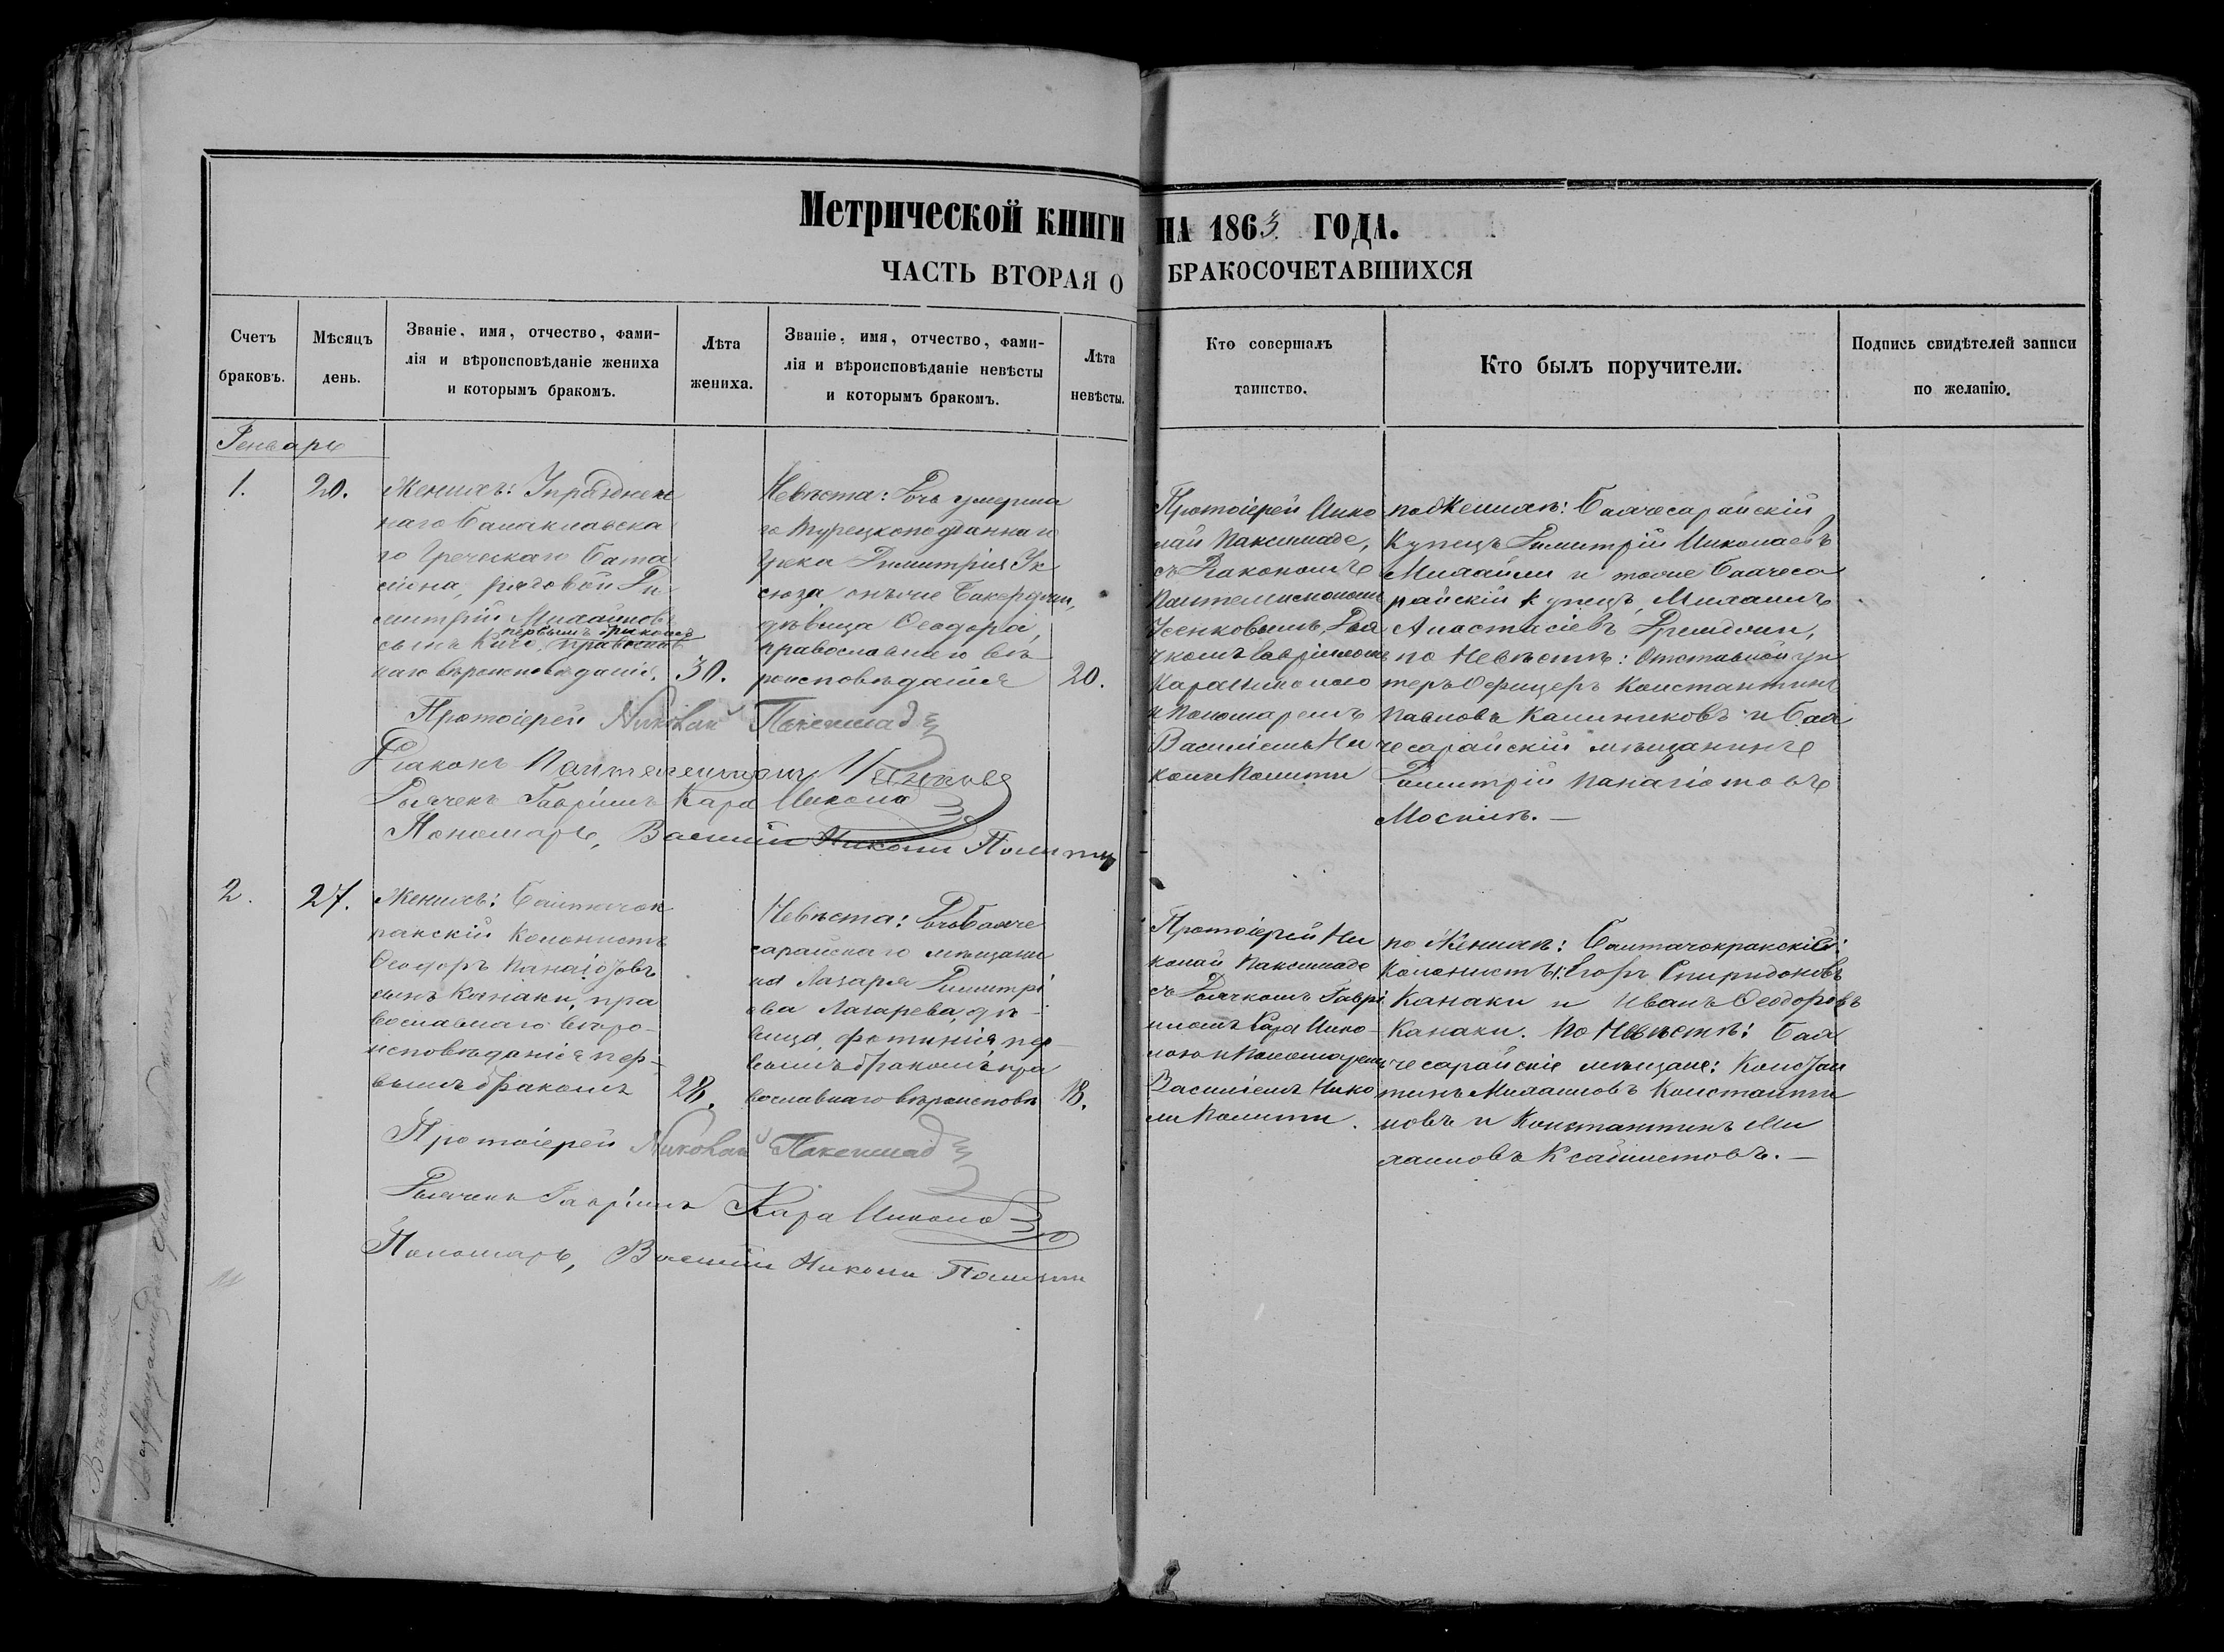 Метрической книги на 1863 года.
ЧАСТЬ ВТОРАЯ О БРАКОСОЧЕТАВШИХСЯ
Счетъ
браковъ.
Мѣсяцъ
день.
Званіе, имя, отчество, фами-
лія и вѣроисповѣданіе жениха
и которымъ бракомъ.
Лѣта
жениха.
Званіе, имя, отчество, фами-
лія и вѣроисповѣданіе невѣсты
и которымъ бракомъ.
Лѣта
невѣсты.
Кто совершалъ
таинство.
Кто былъ поручители.
Подпись свидѣтелей записи
по желанію.
Генварь
1.
20.
Женихъ: Упразднен
наго Балаклавска
го Греческаго Бата
ліона, рядовой Ди
митрій Михайловъ
первымъ бракомъ
сынъ православ
наго вѣроисповѣданія.
30.
Невѣста: Дочь умерша
го Турецкоподданнаго
Грека Димитрія
дѣвица Ѳеодора,
православнаго вѣ
роисповѣданія
20.
Протоіерей Нико
лай Паксимаде,
съ Діакономъ
Пантелеимономъ
Дья
чкомъ Гавріиломъ
Кара Николою
и Пономаремъ
Василіемъ Ни
коли Политти
по Женихѣ: Бахчесарайскій
Купецъ Димитрій Николаевъ
Михайли и тоже Бахчеса
райскій купецъ, Михаилъ
Анастасіевъ
по Невѣстѣ: Отставной ун
теръ Офицеръ Константинъ
Павловъ Калиниковъ и Бах
чесарайскій мѣщанинъ
Димитрій Панагіотовъ
Протоіерей Николай Паксимаде
Діаконъ Пантелеимонъ
Дьячекъ Гавріилъ Кара Никола
Пономарь, Василій Николи Политти
2.
27.
Женихъ: Балтачок
ракскій Колонистъ
Ѳеодоръ Панаіотовъ
сынъ Канаки, пра
вославнаго вѣро-
исповѣданія пер-
вымъ бракомъ
28.
Невѣста: Дочь Бахче
сарайскаго мѣщани
на Лазаря Димитрі
ева Лазарева, дѣ-
вица, Фотинія, пер-
вымъ бракомъ пра
вославнаго вѣроисповѣ
18.
Протоіерей Ни
колай Паксимаде
съ Дьячкомъ Гаврі
иломъ Кара Нико-
лою и Пономаремъ
Василіемъ Нико
ли Политти.
по Женихѣ: Балтачокракскій
Колонисты: Егоръ Спиридоновъ
Канаки и Иванъ Ѳеодоровъ
Канаки. По Невѣстѣ: Бах
чесарайскіе мѣщане: Констан
тинъ Михаиловъ Константи
новъ и Константинъ Ми
хаиловъ
Протоіерей Николай Паксимаде
Дьячекъ Гавріилъ Кара Никола
Пономарь, Василій Николи Политти